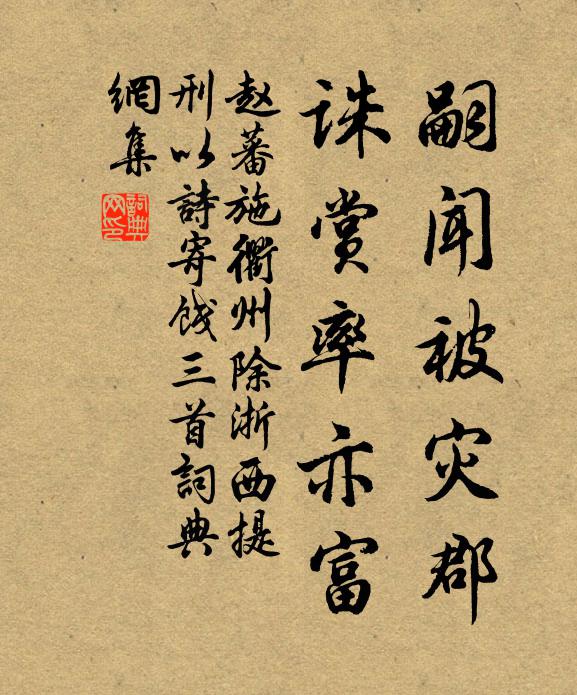 嗣闻被灾郡
诛赏率亦富
赵蕃施衢州除浙西提
刑以詩寄餞三首詞典
網集
詞典網印